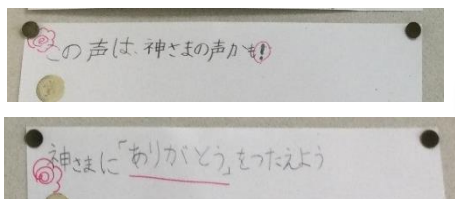 この声は、神さまの声かも!
神さまに「ありがとう」をつたえよう